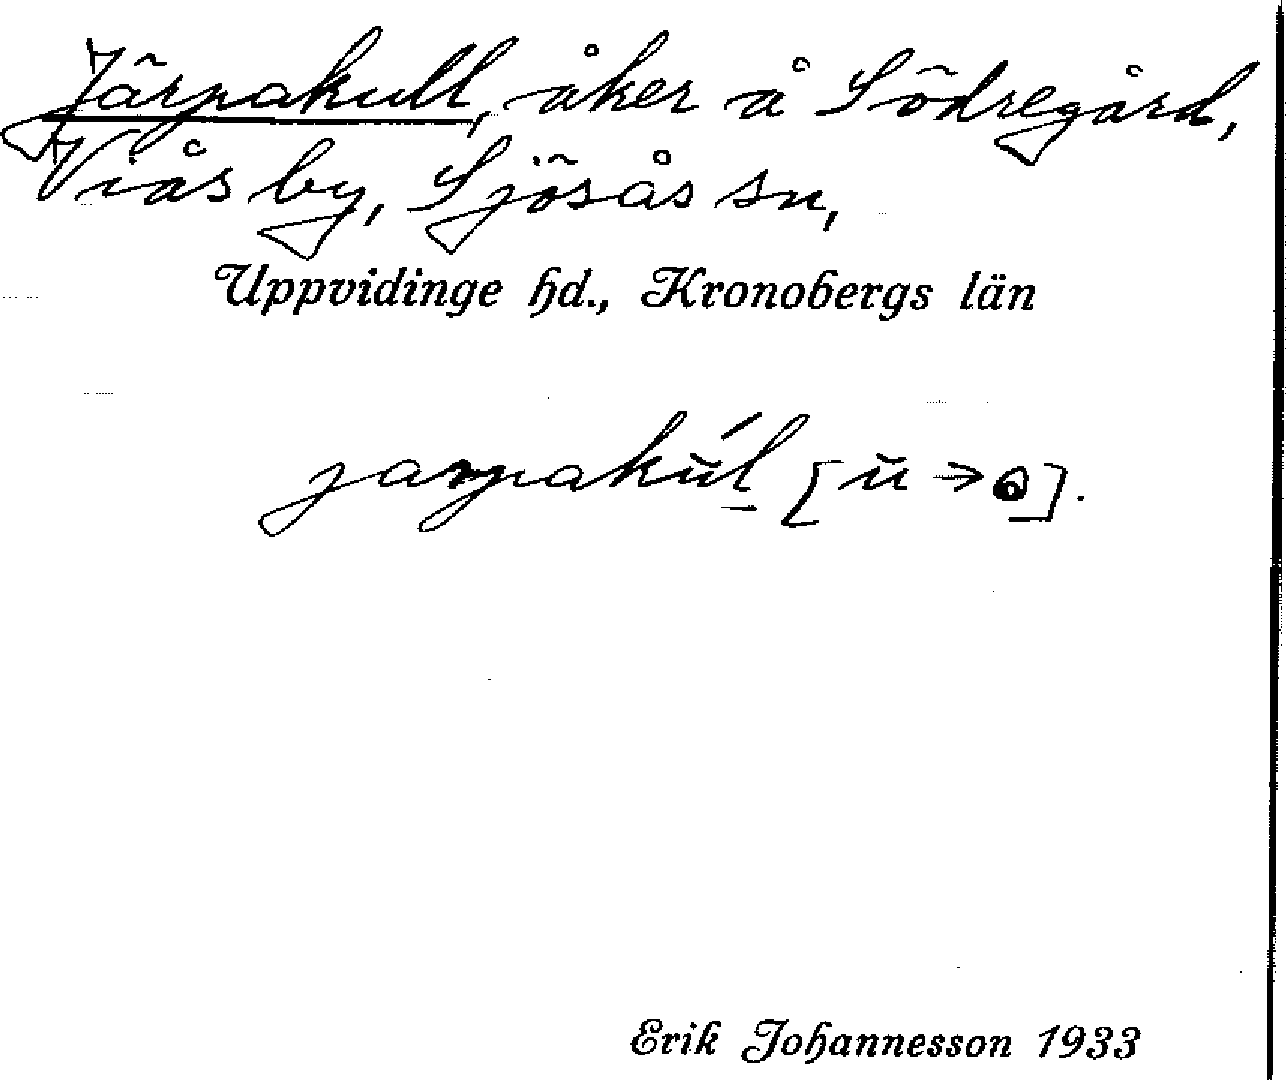 Järpakull, åker å Södregård,
Viås by, Sjösås sn,
Uppvidinge hd., Kronobergs län
jarpakŭ́l [ŭ → ].
Erik Johannesson 1933